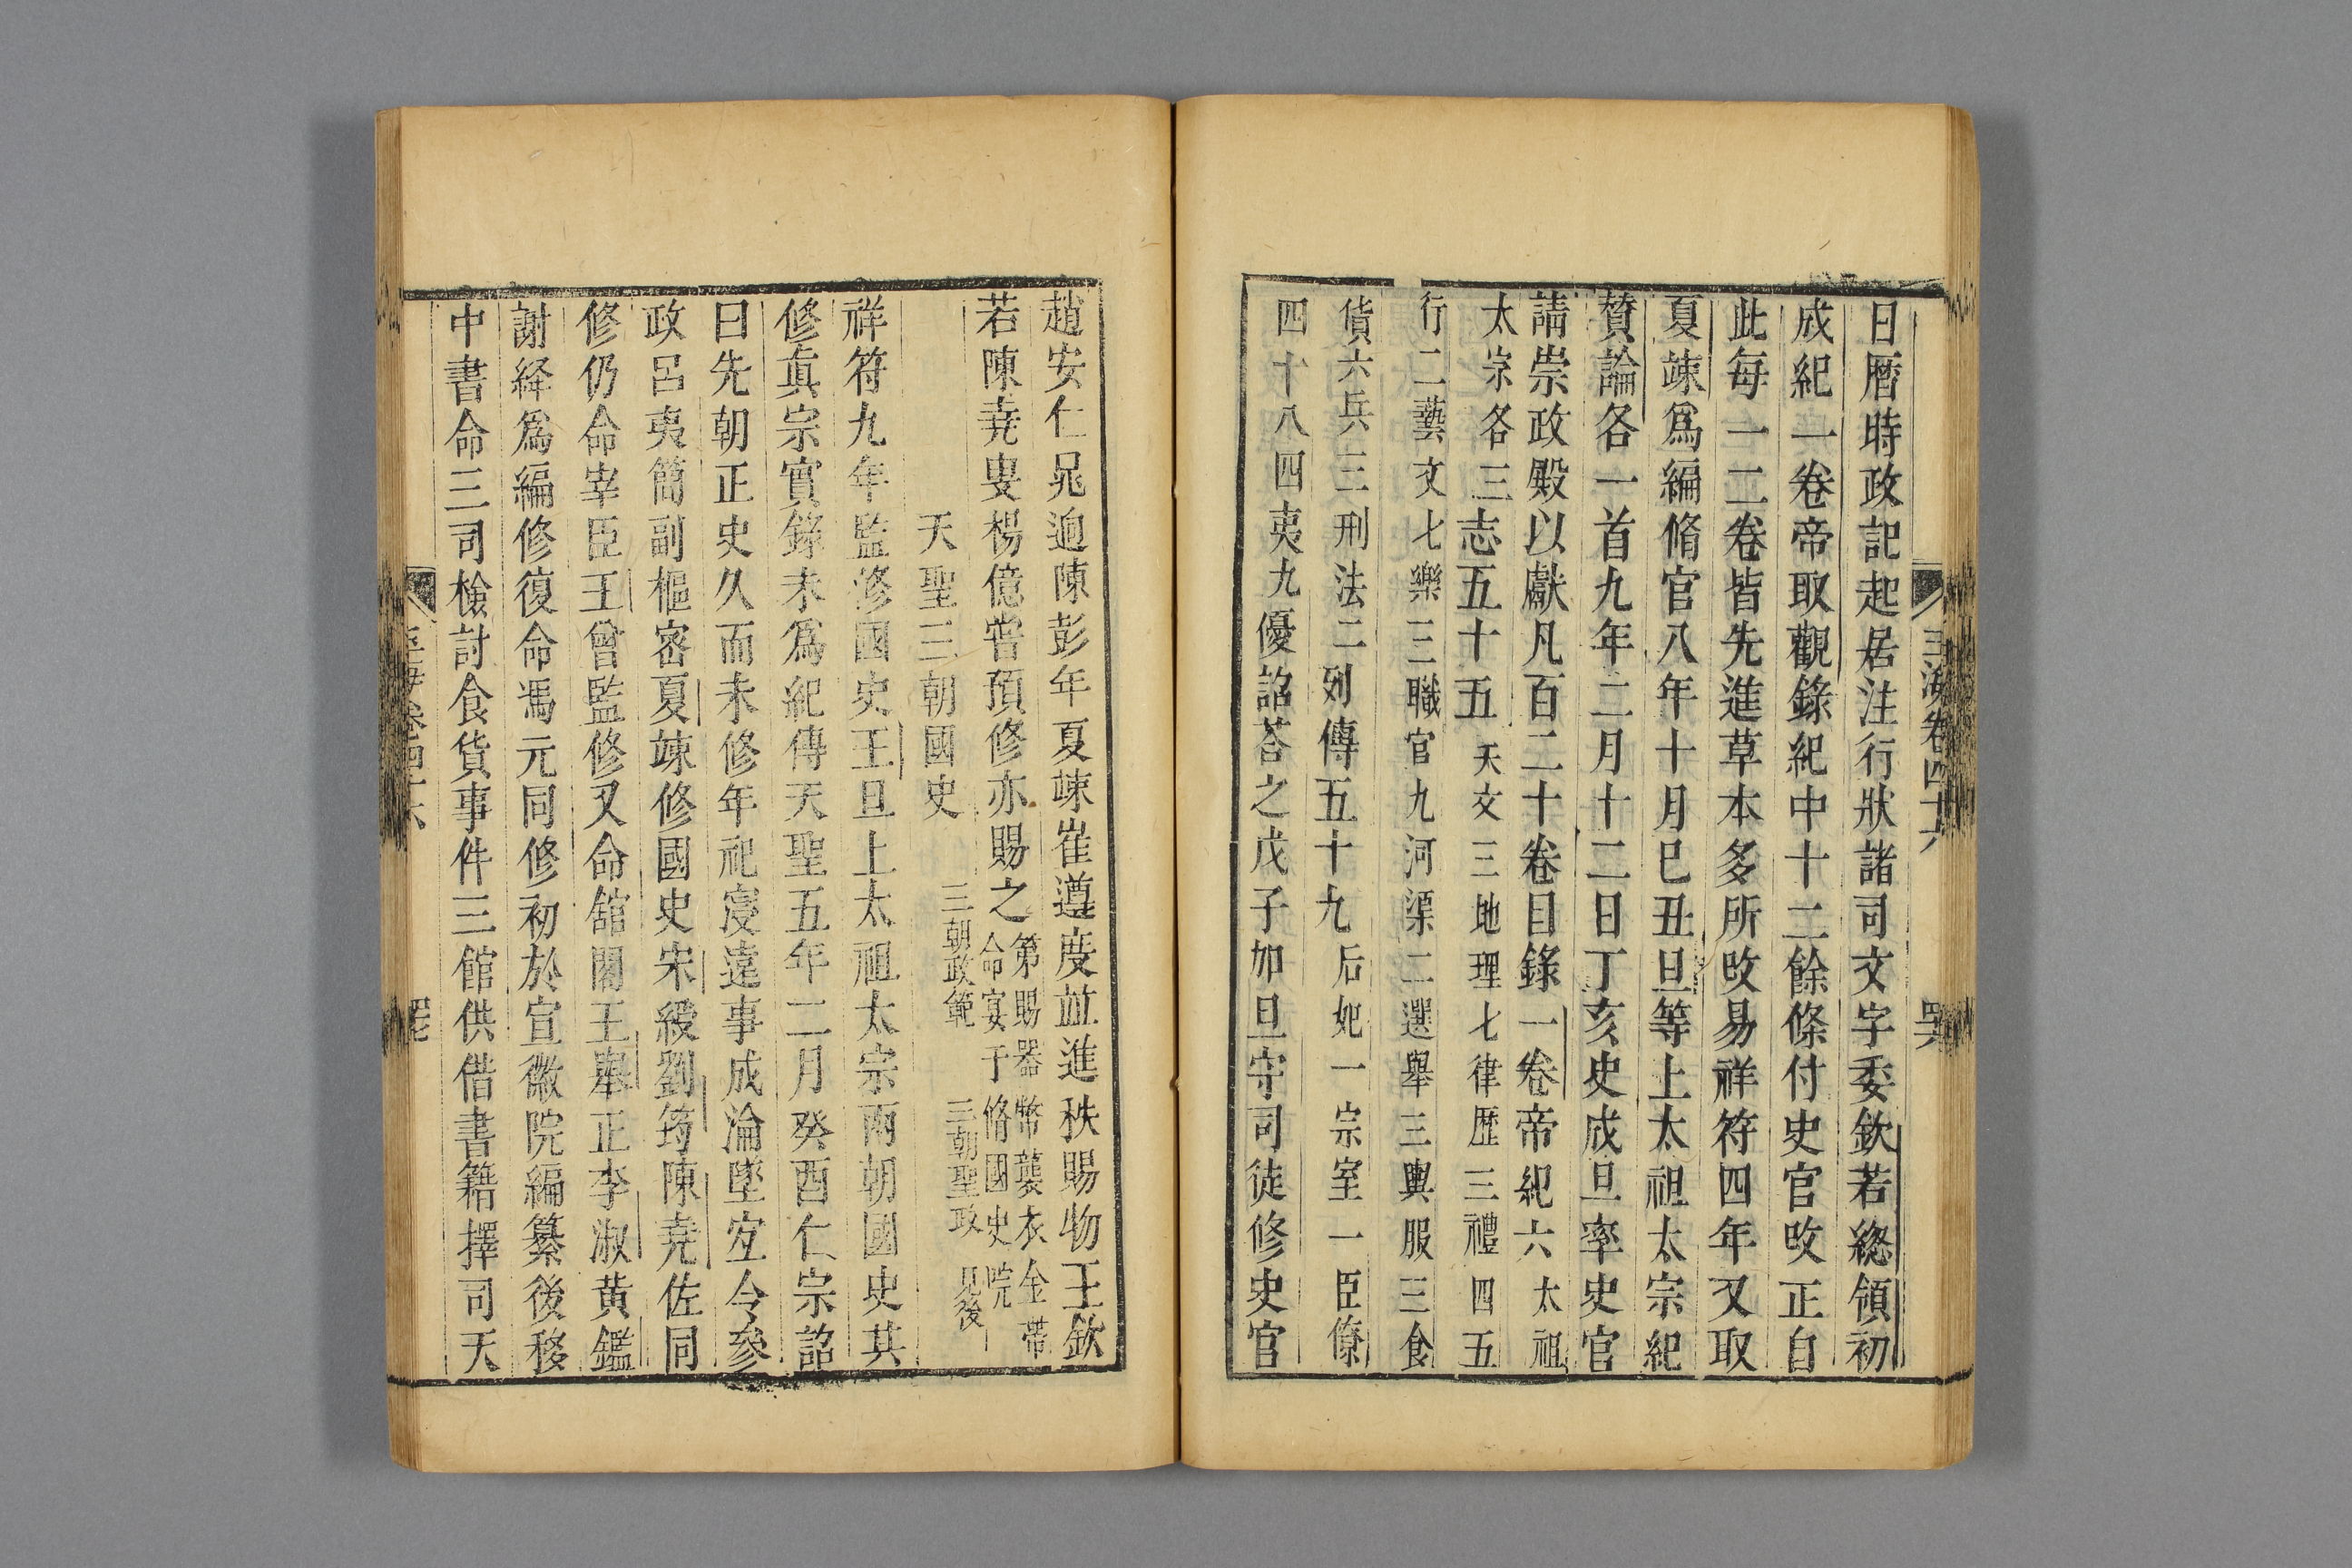 日曆時政記起居注行狀諸司文字委欽若緫領初
成紀一卷帝取觀錄紀中十二餘條付史官攺正自
此每一二卷皆先進草本多所攺易祥符四年又取
夏竦爲編脩官八年十月巳丑旦等上太祖太宗紀
賛論各一首九年二月十二日丁亥史成旦率史官
請崇政殿以獻凡百二十卷目錄一卷帝紀六太祖
太宗各三志五十五天文三地理七律歷三禮四五
行二藝文七樂三職官九河渠二選舉三輿服三食
貨六兵三刑法二列傳五十九后妃一宗室一臣僚
四十八四夷九優詔荅之戊子加旦守司徒修史官
玉海卷四十六
趙安仁晁迥陳彭年夏竦崔遵度並進秩賜物王欽
若陳堯叟楊億甞預修亦賜之第賜器幣襲衣金帶
命宴于脩國史院
天聖三朝國史 三朝政範 三朝聖政 見後
祥符九年監修國史王旦上太祖太宗兩朝國史其
修眞宗實錄未爲紀傳天聖五年二月癸酉仁宗詔
曰先朝正史久而未修年祀寖遠事成淪墜宐令參
政呂夷簡副樞密夏竦修國史宋綬劉筠陳堯佐同
修仍命宰臣王曾監修又命舘閣王舉正李淑黄鑑
謝絳爲編修復命馮元同修初於宣徽院編纂後移
中書命三司檢討食貨事件三館供借書籍擇司天